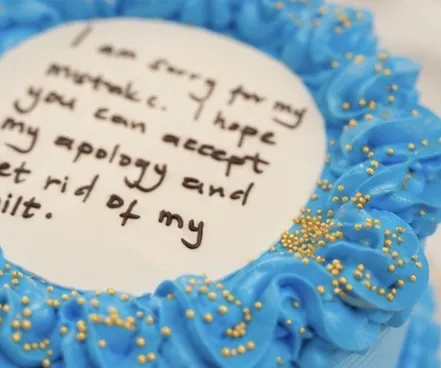 I am sorry for my
mistake. I hope
you can accept
my apology and
et rid of my
ilt.